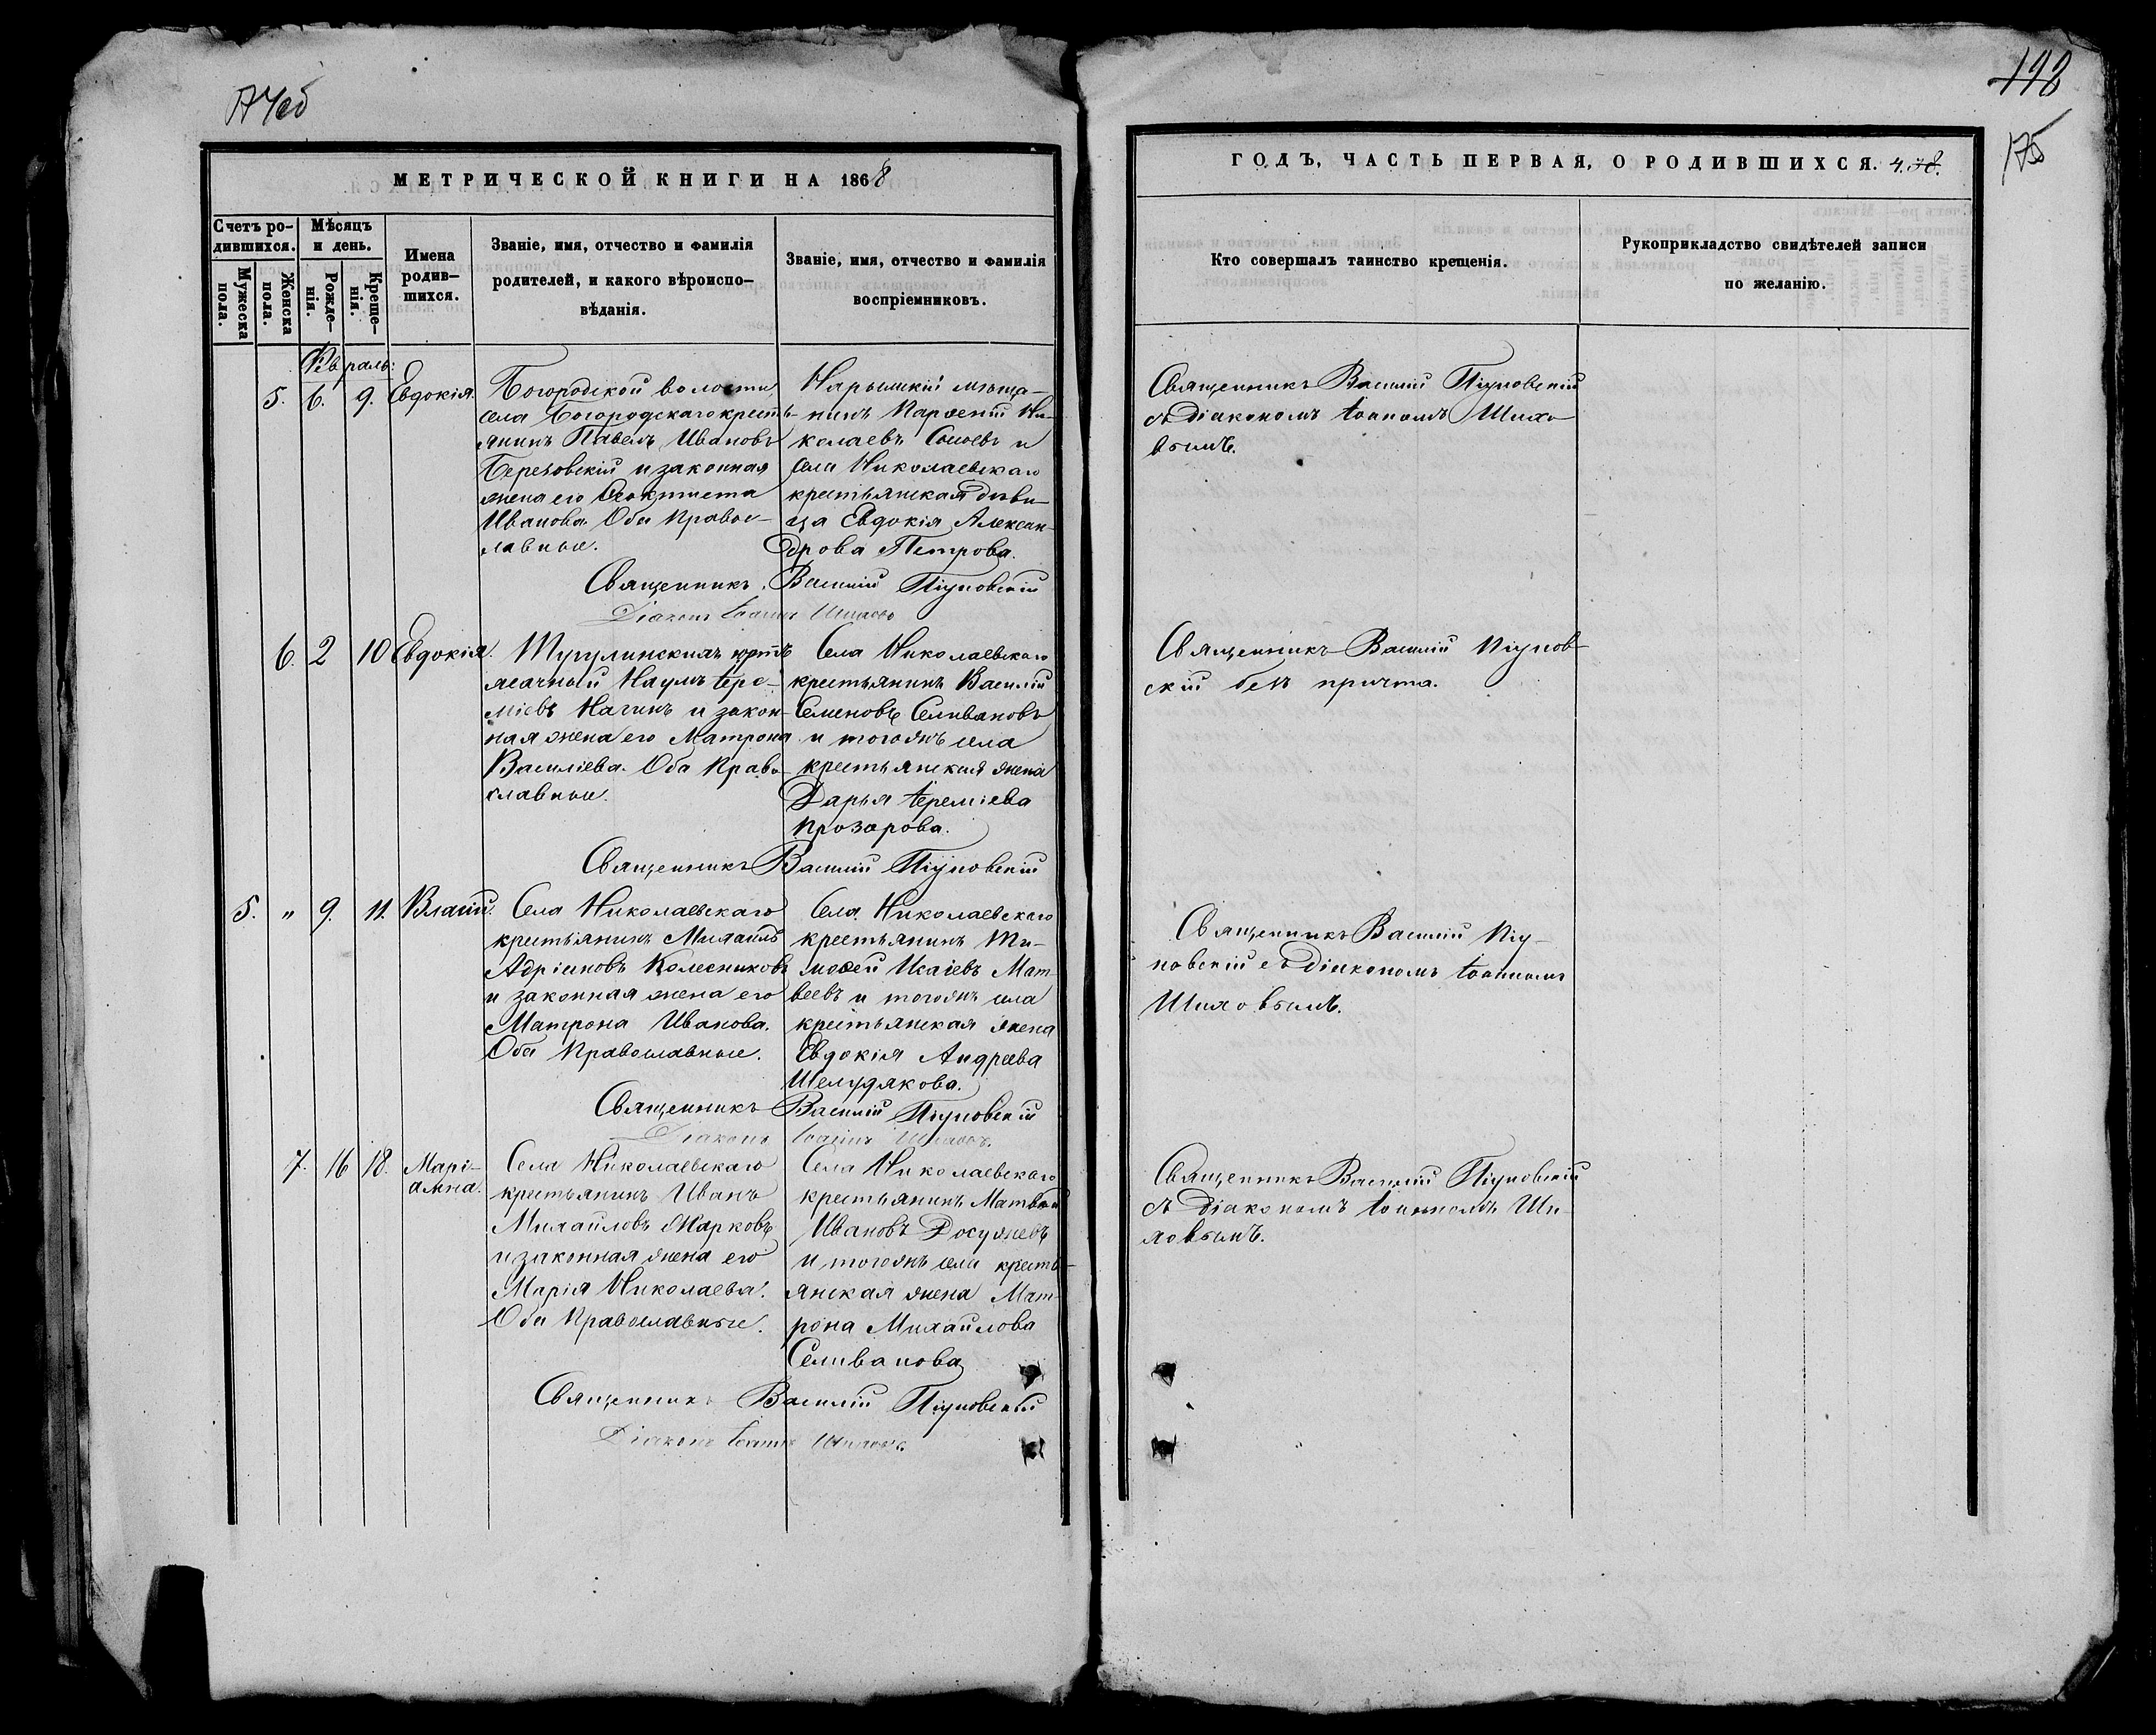 МЕТРИЧЕСКОЙ КНИГИ НА 1868
Счетъ ро-
дившихся.
Мужеска
пола.
Женска
пола.
Мѣсяцъ
и день.
Рожде-
нія.
Креще-
нія.
Имена
родив-
шихся.
Званіе, имя, отчество и фамилія
родителей, и какого вѣроиспо-
вѣданія.
Званіе, имя, отчество и фамилія
воспріемниковъ.
Февраль:
5. 6. 9. Евдокія.
Богородской волости,
села Богородскаго кресть-
янинъ Павелъ Ивановъ
Березовскій и законная
жена его Ѳеоктиста
Иванова. Оба Правос-
лавные.
Нарымскій мѣща-
нинъ Парѳеній Ни-
колаевъ Сысоевъ и
села Николаевскаго
крестьянская дѣви-
ца Евдокія Алексан-
дрова Петрова.
Священникъ Василій Піуновскій
Діаконъ Іоаннъ Шиховъ
6. 2 10 Евдокія.
Тугулинскихъ юртъ
ясачный Наумъ Іере-
міевъ Нагинъ и закон-
ная жена его Матрона
Василіева. Оба Право-
славные.
Села Николаевскаго
крестьянинъ Василій
Семеновъ Селивановъ
и тогожъ села
крестьянская жена
Дарья Іереміева
Прозорова.
Священникъ Василій Піуновскій
5. " 9. 11. Власій.
Села Николаевскаго
крестьянинъ Михаилъ
Адріановъ Колесниковъ
и законная жена его
Матрона Иванова.
Оба Православные.
Села Николаевскаго
крестьянинъ Ти-
моѳей Исаіевъ Мат-
веевъ и тогожъ села
крестьянская жена
Евдокія Андреева
Шелудякова.
Священникъ Василій Піуновскій
Діаконъ Іоаннъ Шиховъ.
7. 16 18. Марі-
амна.
Села Николаевскаго
крестьянинъ Иванъ
Михайловъ Марковъ
и законная жена его
Марія Николаева.
Оба Православные.
Села Николаевскаго
крестьянинъ Матвей
Ивановъ Досужевъ
и тогожъ села кресть-
янская жена Мат-
рона Михайлова
Селиванова
Священникъ Василій Піуновскій
Діаконъ Іоаннъ Шиховъ.
118
175
ГОДЪ, ЧАСТЬ ПЕРВАЯ, О РОДИВШИХСЯ.
Кто совершалъ таинство крещенія.
Рукоприкладство свидѣтелей записи
по желанію.
Священникъ Василій Піуновскій
съ Діакономъ Іоанномъ Шихо-
вымъ.
Священникъ Василій Піунов-
скій безъ причта.
Священникъ Василій Піу-
новскій съ Діакономъ Іоанномъ
Шиховымъ.
Священникъ Василій Піуновскій
съ Діакономъ Іоанномъ Ши-
ховымъ.